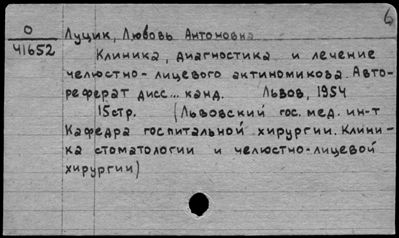 6
О
41652
Луцик, Любовь Антоновна
Клиника, диагностика и лечение
челюстно-лицевого актиномикоза. Авто-
реферат дисс... канд. Львов, 1954
15стр. (Львовский гос. мед. ин-т
Кафедра госпитальной хирургии. Клини-
ка стоматологии и челюстно-лицевой
хирургии)